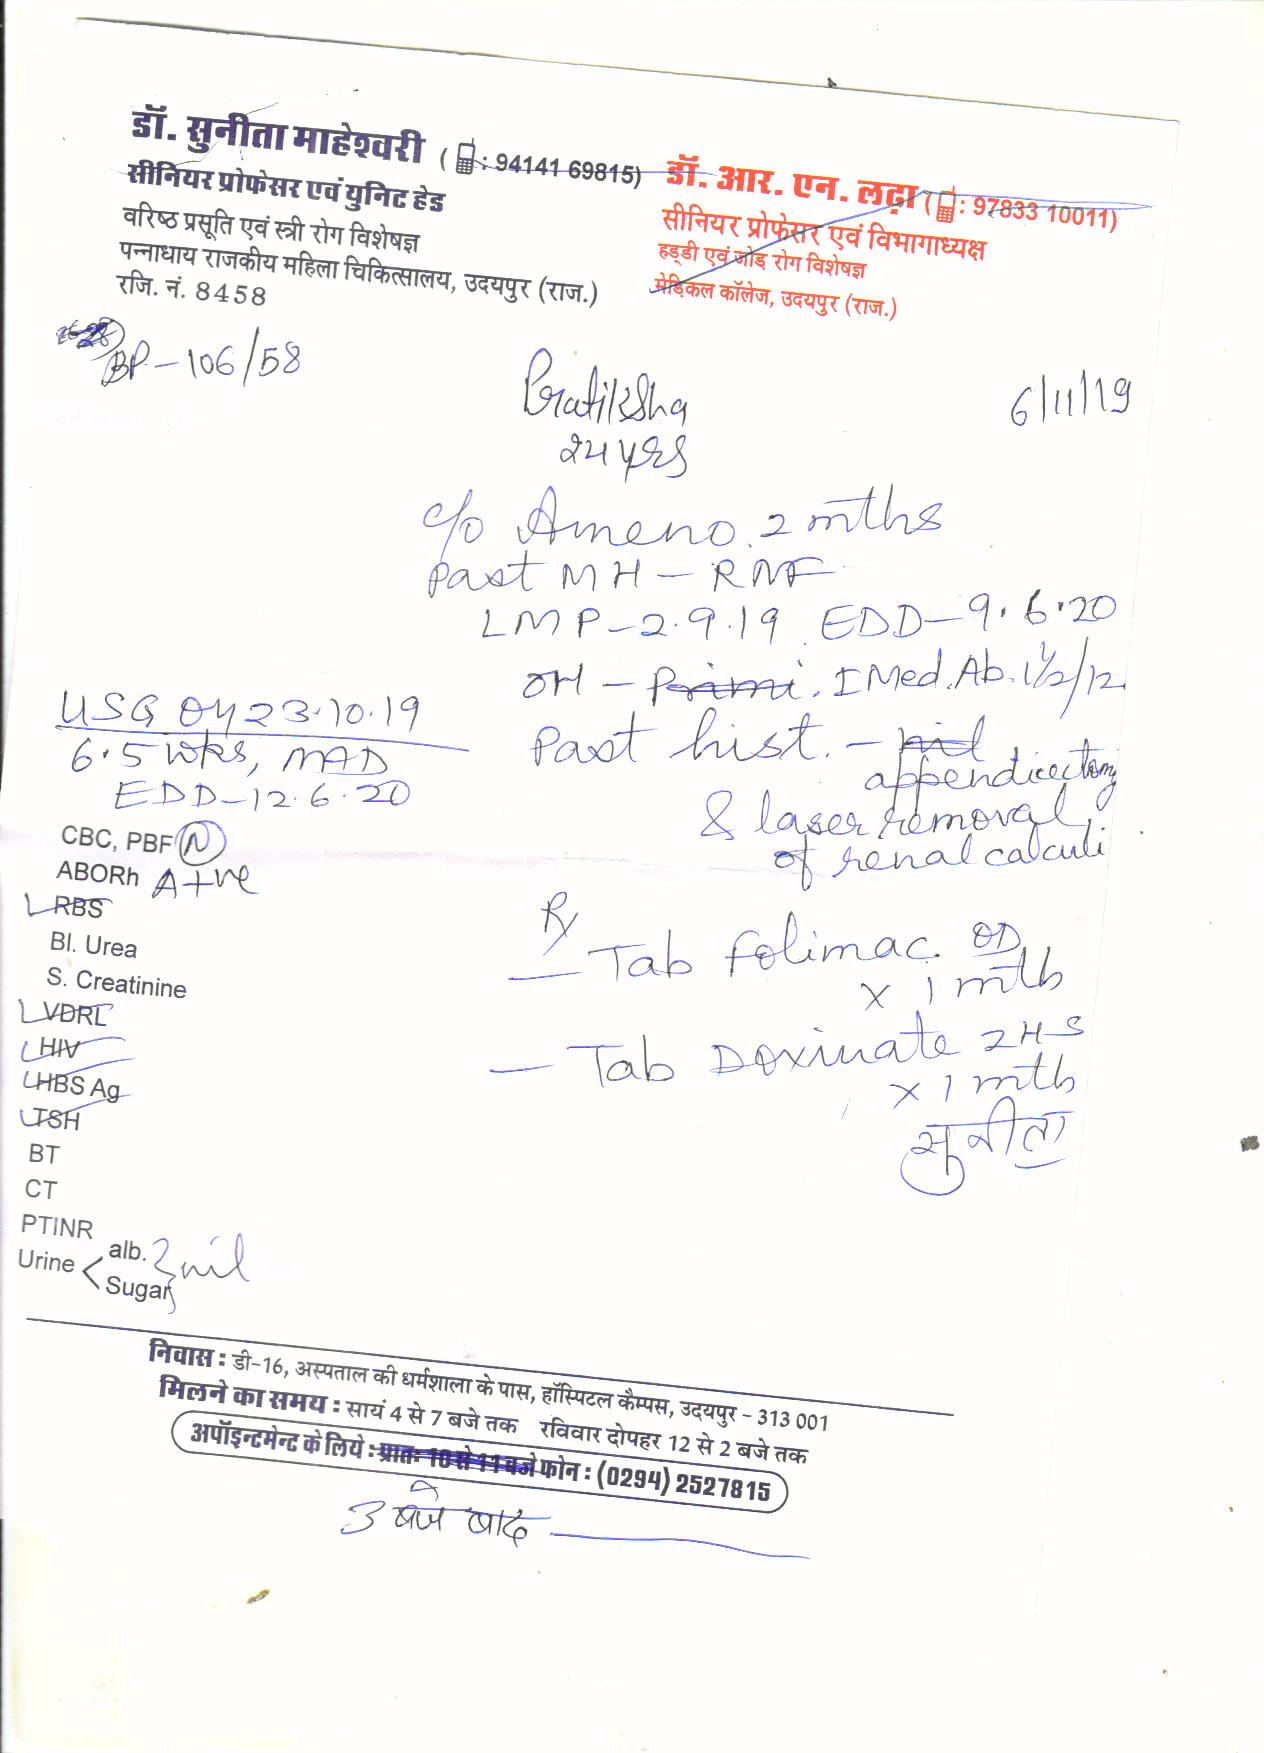 डॉ. सुनीता माहेश्वरी ( : 94141 69815)
सीनियर प्रोफेसर एवं युनिट हेड
वरिष्ठ प्रसूति एवं स्त्री रोग विशेषज्ञ
पन्नाधाय राजकीय महिला चिकित्सालय, उदयपुर (राज.)
रजि. नं. 8458
डॉ. आर. एन. लढ़ा ( : 97833 10011)
सीनियर प्रोफेसर एवं विभागाध्यक्ष
हड्डी एवं जोड़ रोग विशेषज्ञ
मेडिकल कॉलेज, उदयपुर (राज.)
BP - 106/58
Pratiksha
24 yrs
6/11/19
c/o Ameno. 2 mths
Past MH - RNF
LMP - 2.9.19 EDD - 9.6.20
OH - Primi. I Med. Ab. 1½/12
Past hist. - nil
appendicectomy
& laser removal
of renal calculi
USG 23.10.19
6.5 wks,
EDD - 12.6.20
CBC, PBF N
ABORh A+ve
RBS
Bl. Urea
S. Creatinine
VDRL
HIV
HBS Ag
TSH
BT
CT
PTINR
Urine alb. nil
Sugar
Rx
- Tab Folimac. OD
x 1 mth
- Tab Doxinate 2 HS
x 1 mth
सुनीता
निवास : डी-16, अस्पताल की धर्मशाला के पास, हॉस्पिटल कैम्पस, उदयपुर - 313 001
मिलने का समय : सायं 4 से 7 बजे तक रविवार दोपहर 12 से 2 बजे तक
अपॉइन्टमेन्ट के लिये : प्रातः 10 से 11 बजे फोन : (0294) 2527815
3 बजे बाद